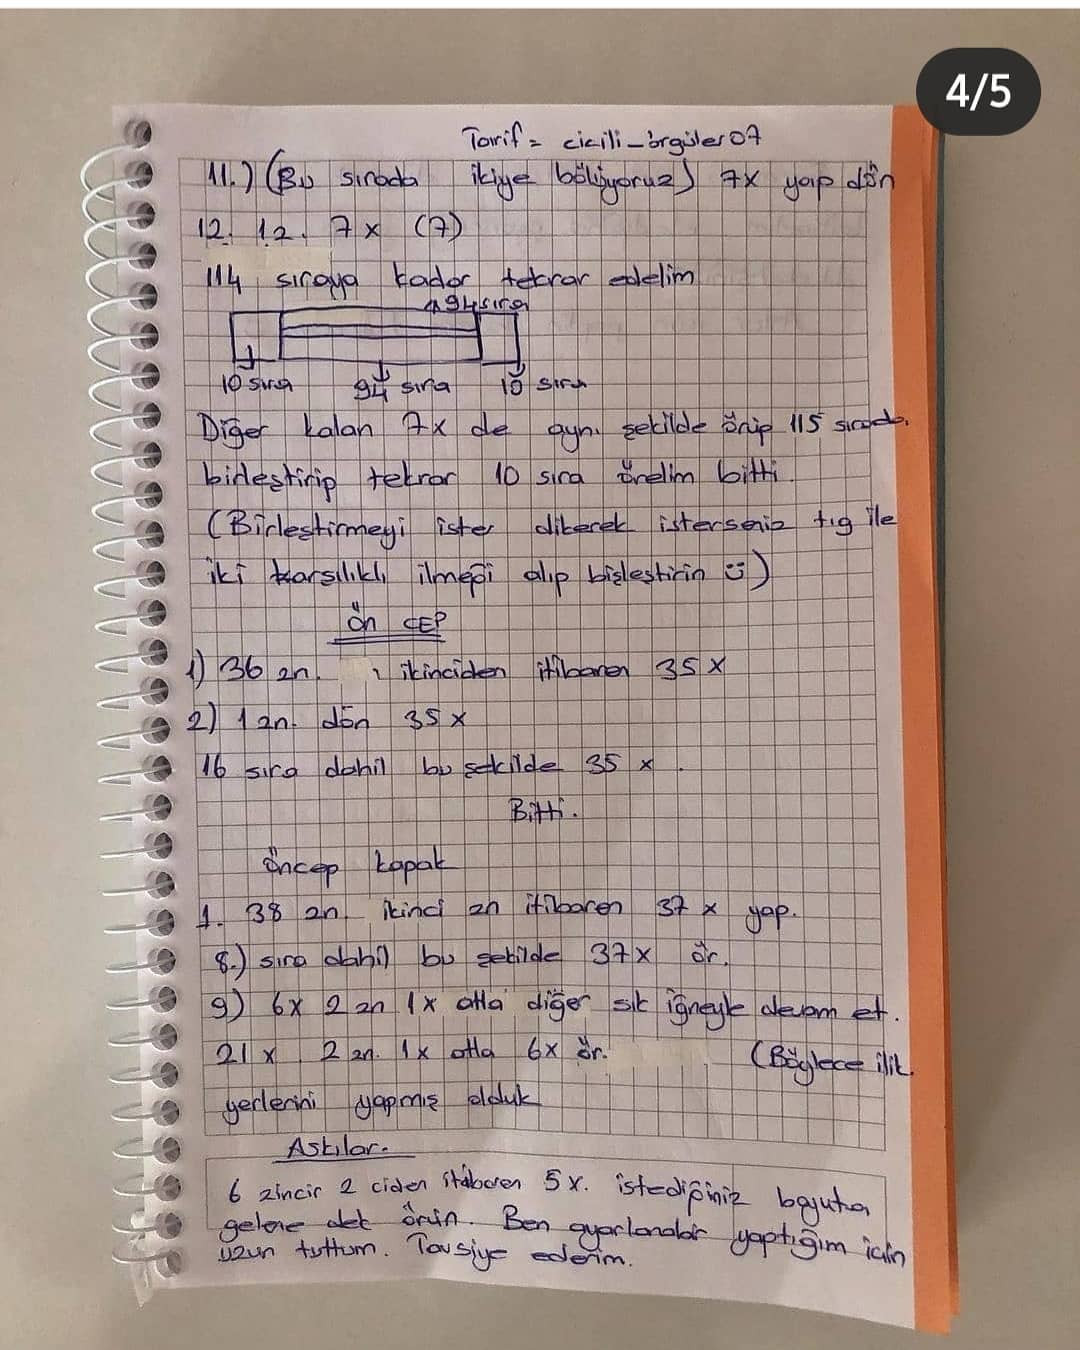 4/5
Tarif = cicili_örgüler07
11.) (Bu sırada ikiye bölüyoruz) 7x yap dön
12. 1z. 7x (7)
114 sıraya kadar tekrar edelim
94 sıra
10 sıra 94 sıra 10 sıra
Diğer kalan 7x de aynı şekilde örüp 115 sırada.
birleştirip tekrar 10 sıra örelim bitti.
(Birleştirmeyi ister dikerek isterseniz tığ ile
iki karşılıklı ilmeği alıp birleştirin ü)
ön CEP
1) 36 zn. ikinciden itibaren 35 x
2) 1 zn. dön 35 x
16 sıra dahil bu şekilde 35 x .
Bitti.
öncep kapak
1. 38 zn. ikinci zn itibaren 37 x yap.
8.) sıra dahil bu şekilde 37x ör.
9) 6x 2 zn 1x atla diğer sık iğneyle devam et.
21 x 2 zn. 1x atla 6x ör. (Böylece ilik
yerlerini yapmış olduk
Askılar.
6 zincir 2 ciden itibaren 5 x. istediğiniz boyuta
gelene dek örün. Ben ayarlanabilir yaptığım için
uzun tuttum. Tavsiye ederim.